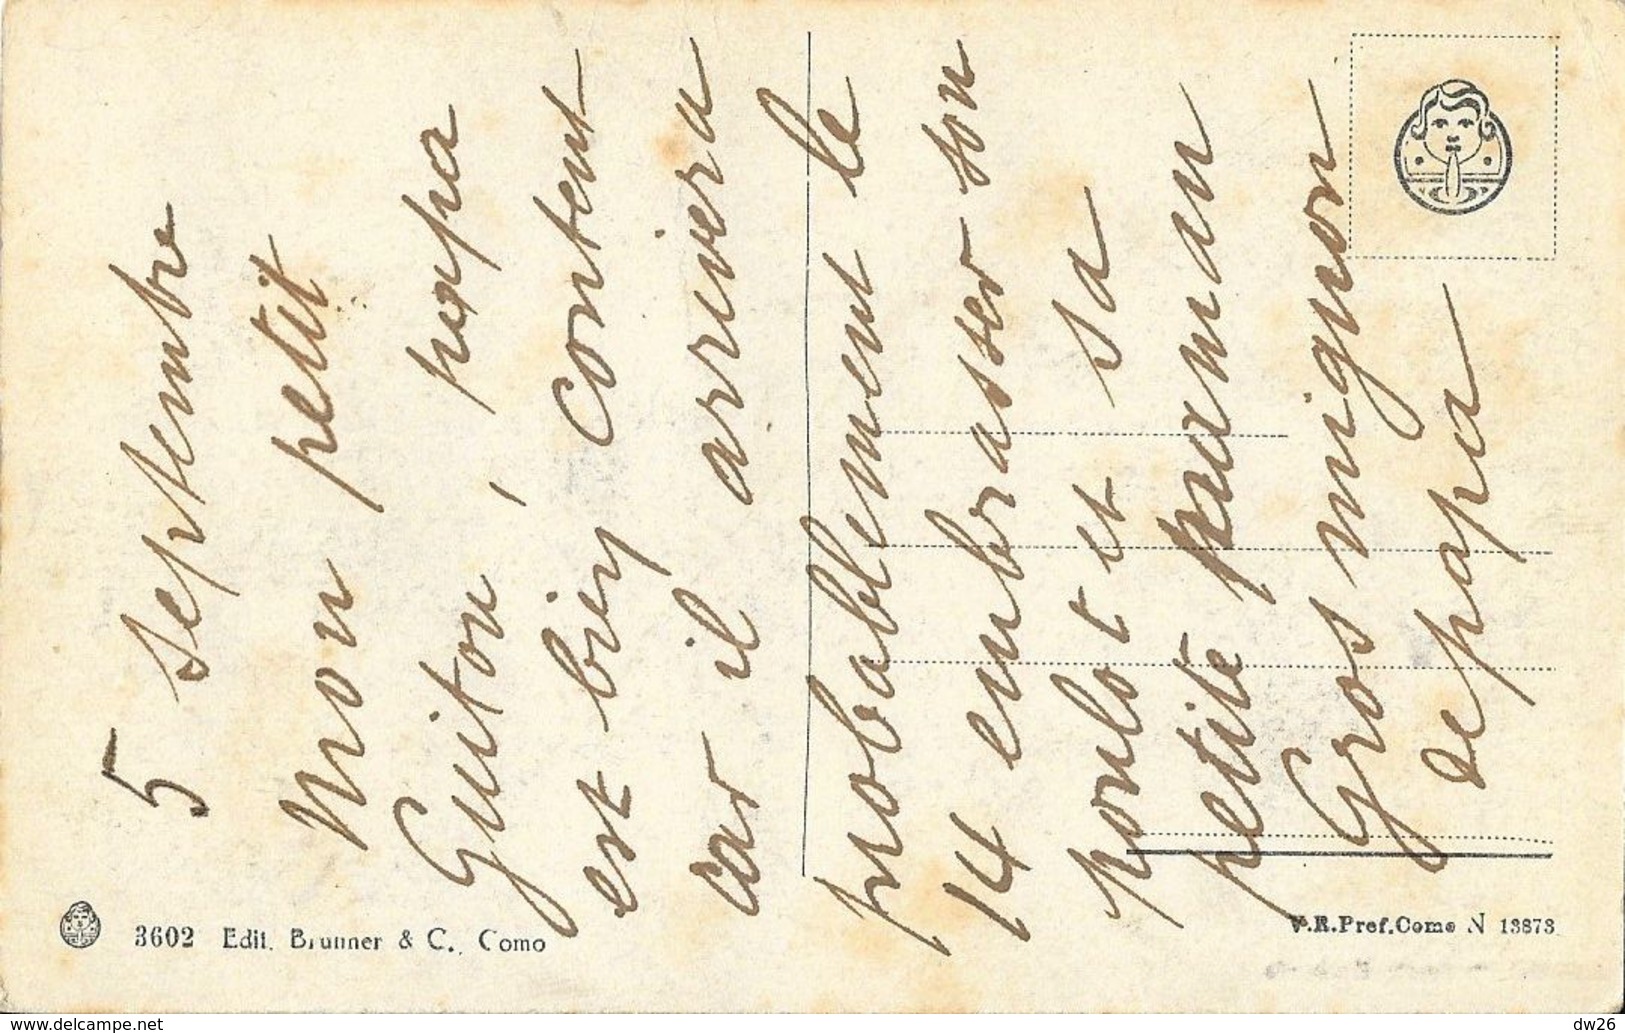 5 septembre
Mon petit
Guiton, papa
est bien content
car il arrivera
probablement le
14 embrasser son
poulot et sa
petite maman
Gros mignon
de papa
3602 Edit. Brunner & C., Como
V.R.Pref.Como N 13873
delcampe.net
dw26